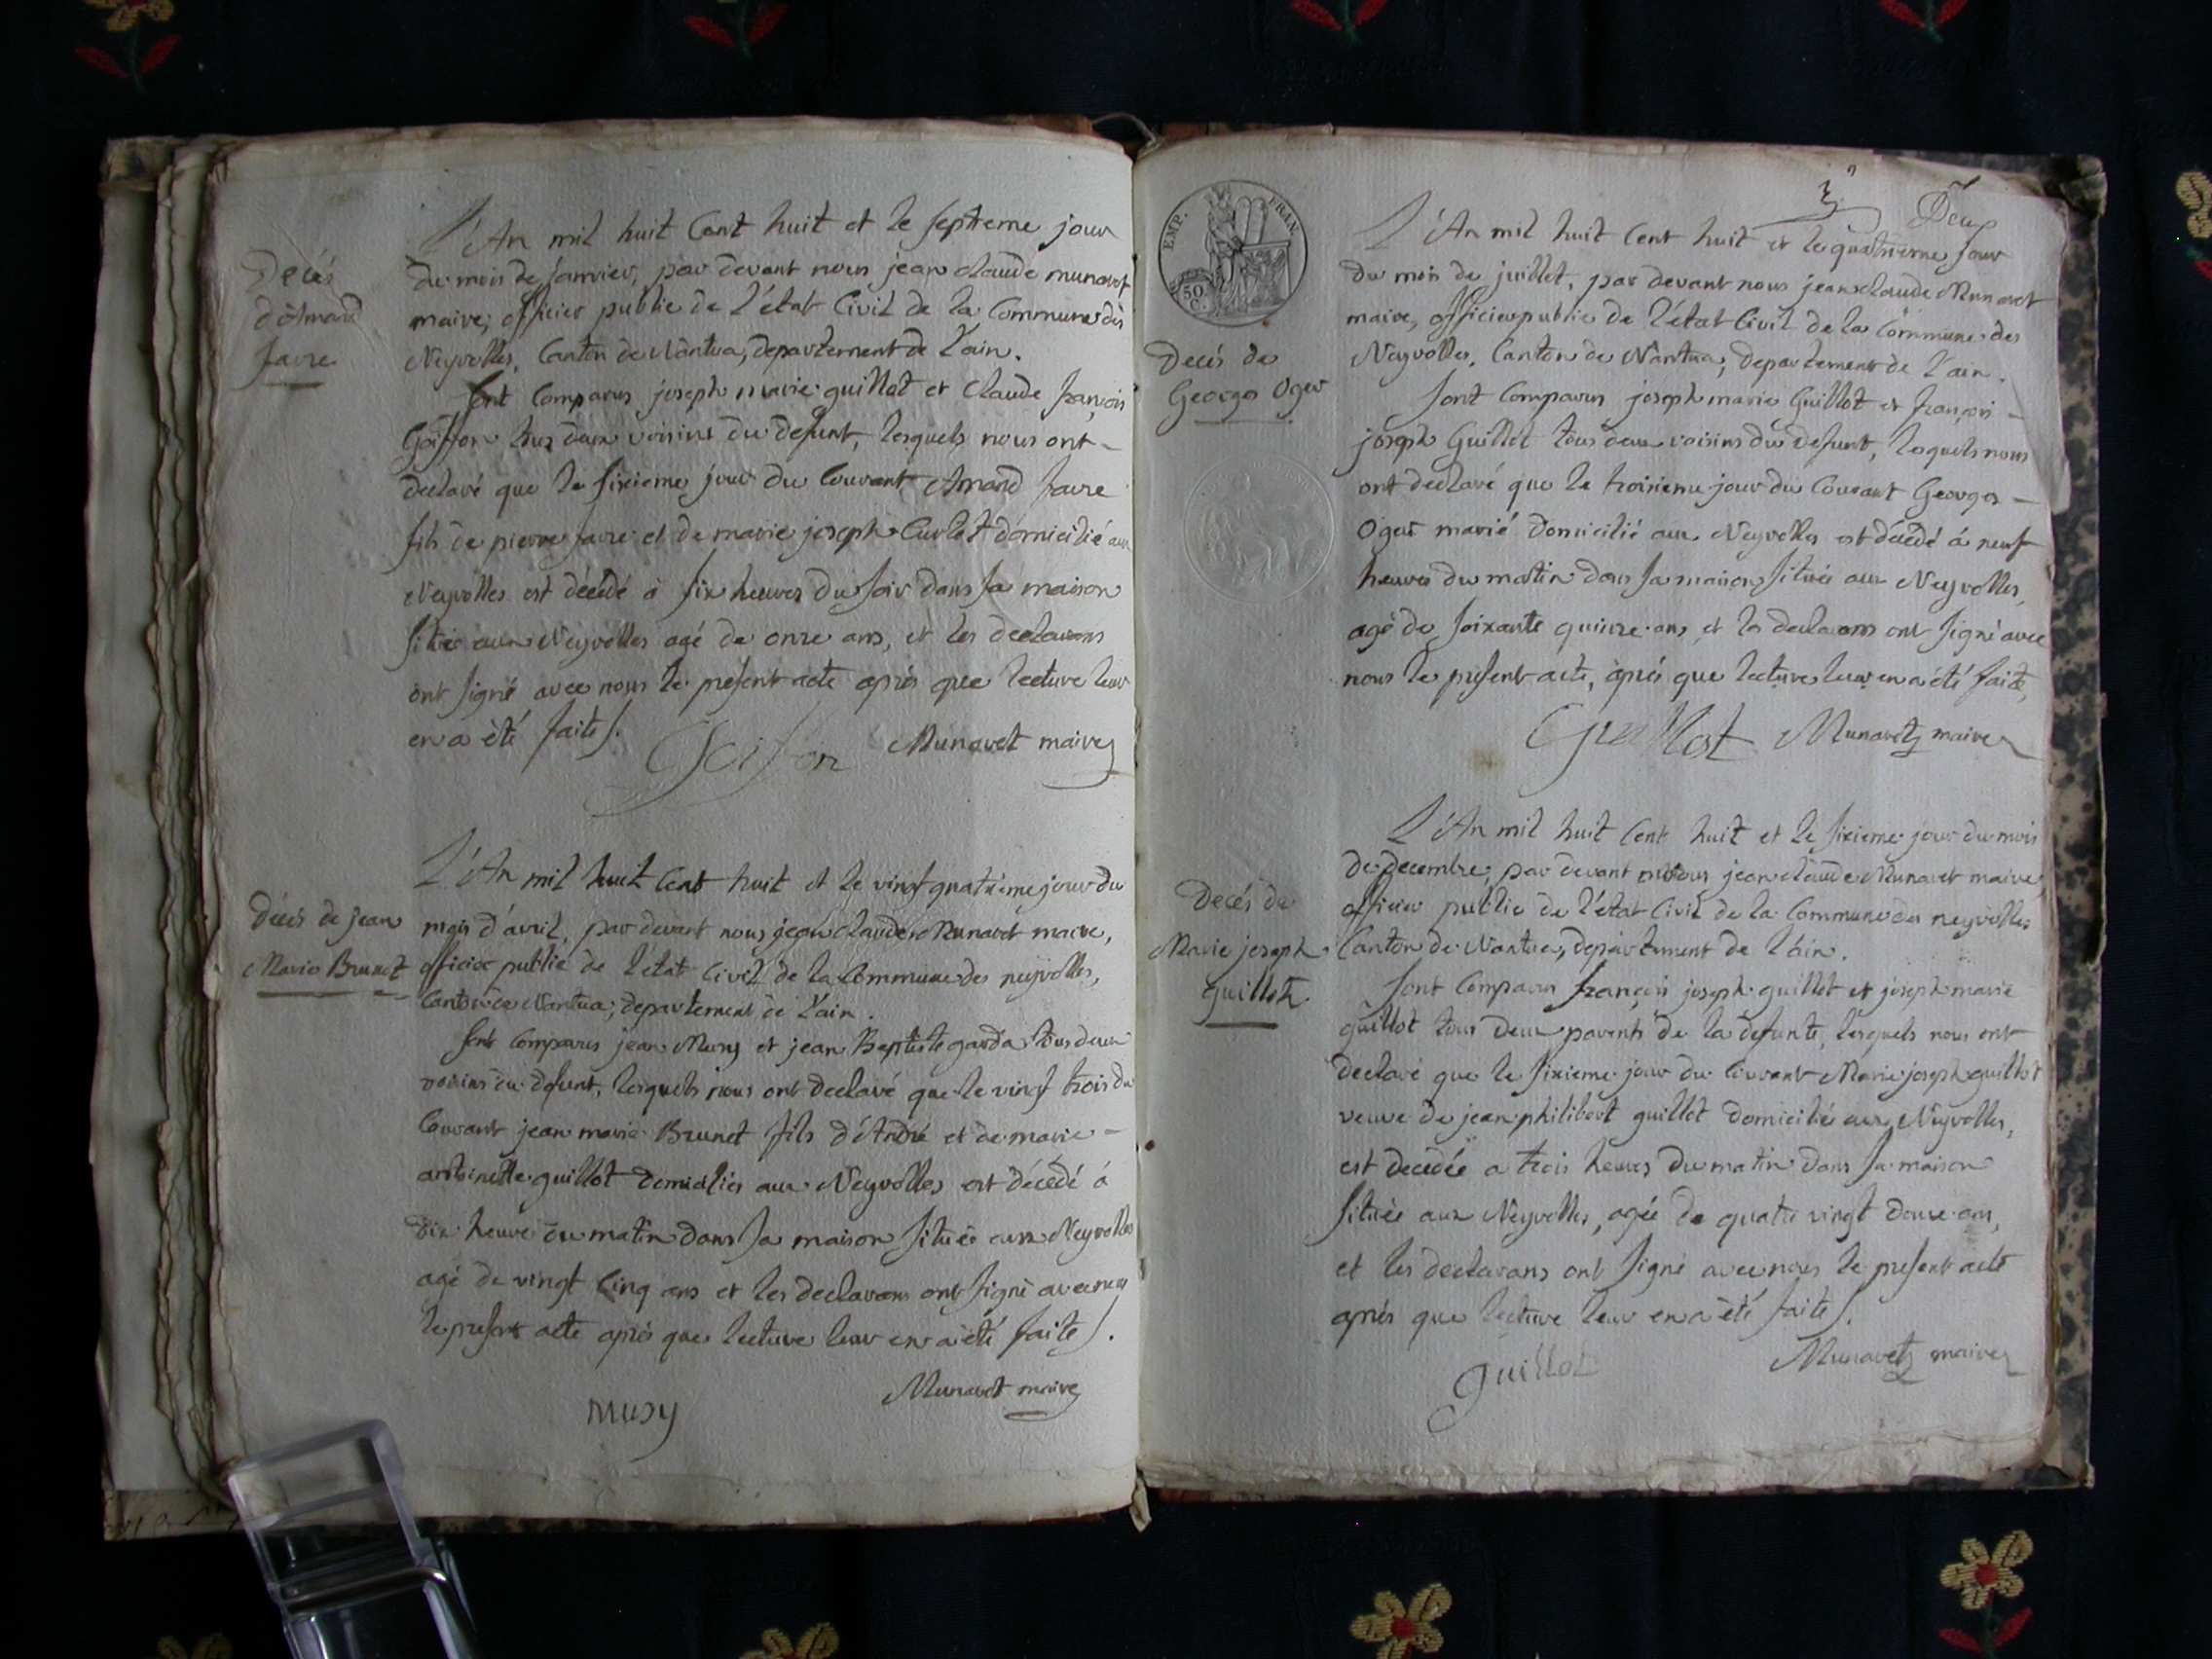 Decés
d'Amand
favre
L'An mil huit Cent huit et le septieme jour
du mois de janvier, par devant nous jean claude munaret
maire, officier public de l'état Civil de la Commune des
Neyrolles, Canton de Nantua, departement de l'ain.
Sont Comparus joseph marie guillot et Claude françois
Goiffon tous deux voisins du defunt, lesquels nous ont
declaré que le sixieme jour du Courant Amand favre
fils de pierre favre et de marie joseph Curlet domicilié aux
Neyrolles est décédé à six heures du soir dans sa maison
située aux Neyrolles agé de onze ans, et les declarans
ont signé avec nous le present acte après que lecture leur
en a été faite.
Goifon Munaret maire
Décés de jean
Marie Brunet
L'An mil huit Cent huit et le vingt quatrieme jour du
mois d'avril, par devant nous jean claude Munaret maire,
officier public de l'état Civil de la Commune des neyrolles,
Canton de Nantua, departement de l'ain.
Sont Comparus jean Musy et jean Baptiste garda tous deux
voisins du defunt, lesquels nous ont declaré que le vingt trois du
Courant jean marie Brunet fils d'André et de marie
antoinette guillot domiciliés aux Neyrolles est décédé à
dix heure du matin dans sa maison située aux Neyrolles
agé de vingt Cinq ans et les declarans ont signé avec nous
le present acte après que lecture leur en a été faite.
Munaret maire
musy
EMP. FRAN.
50
C.
Deux
Decés de
George Oger
L'An mil huit Cent huit et le quatrieme jour
du mois de juillet, par devant nous jean claude Munaret
maire, officier public de l'état Civil de la Commune des
Neyrolles, Canton de Nantua, departement de l'ain.
Sont Comparus joseph marie Guillot et françois
joseph Guillot tous deux voisins du defunt, lesquels nous
ont declaré que le troisieme jour du Courant Georges
Oger marié domicilié aux Neyrolles est décédé à neuf
heures du matin dans sa maison située aux Neyrolles,
agé de soixante quinze ans, et les declarans ont signé avec
nous le present acte, après que lecture leur en a été faite,
Guillot Munaret maire
Decés de
Marie joseph
guillot
L'An mil huit Cent huit et le sixieme jour du mois
de decembre, par devant nous jean claude Munaret maire,
officier public de l'état Civil de la Commune des neyrolles
Canton de Nantua, departement de l'ain.
Sont Comparus françois joseph guillot et joseph marie
guillot tous deux parents de la defunte, lesquels nous ont
declaré que le sixieme jour du Courant Marie joseph guillot
veuve de jean philibert guillot domicilié aux Neyrolles,
est decedée a trois heures du matin dans sa maison
située aux Neyrolles, agée de quatre vingt douze ans,
et les declarans ont signé avec nous le present acte
après que lecture leur en a été faite.
guillot Munaret maire